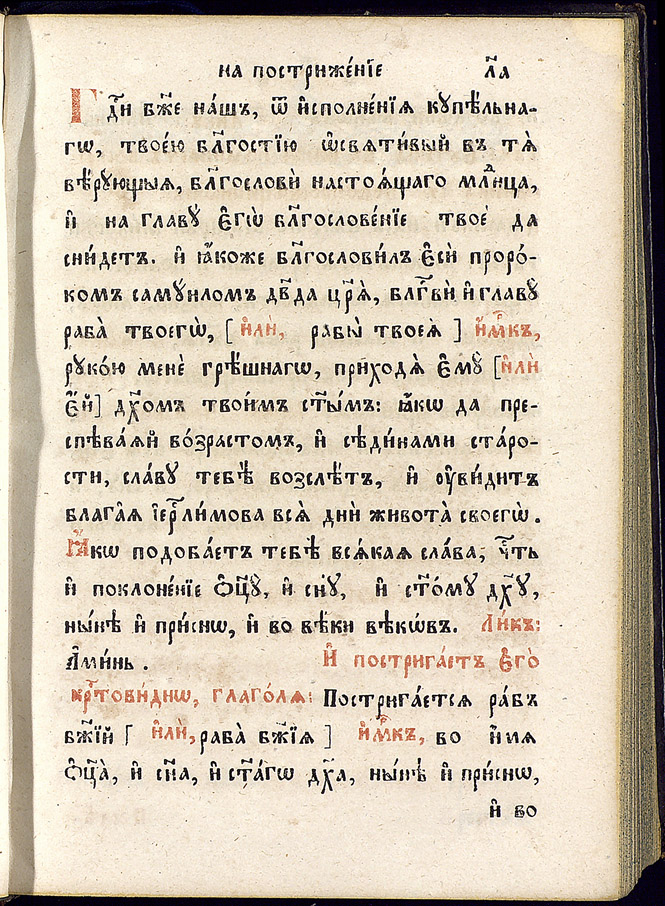 на постриже́нїе л҃а
Гдⷭ҇и бж҃е на́шъ, ѿ и҆сполне́нїѧ кꙋпѣ́льна-
гѡ, твоею́ бл҃гостїю ѡ҆свѧти́вый въ тѧ̀
вѣ́рꙋющыѧ, бл҃гословѝ настоѧ́щаго млⷣнца,
и҆ на главꙋ̀ є҆гѡ̀ бл҃гослове́нїе твоѐ да
сни́детъ. и҆ ꙗ҆́коже бл҃гослови́лъ є҆сѝ проро́-
комъ самꙋи́ломъ дв҃да цр҃ѧ̀, бл҃гⷭ҇вѝ и҆ главꙋ̀
раба̀ твоегѡ̀, [ и҆лѝ, рабы̀ твоеѧ̀ ] и҆́м⃪къ,
рꙋко́ю менѐ грѣ́шнагѡ, приходѧ̀ є҆мꙋ̀ [и҆лѝ
є҆́й] дх҃омъ твои́мъ ст҃ы́мъ: ꙗ҆́кѡ да пре-
спѣва́ѧй во́зрастомъ, и҆ сѣди́нами ста́ро-
сти, сла́вꙋ тебѣ̀ возслѐтъ, и҆ ᲂу҆ви́дитъ
блага̑ѧ і҆ерⷭ҇ли́мова всѧ̑ дни̑ живота̀ своегѡ̀.
Ꙗ҆́кѡ подоба́етъ тебѣ̀ всѧ́каѧ сла́ва, чⷭ҇ть
и҆ поклоне́нїе ѻ҆ц҃ꙋ̀, и҆ сн҃ꙋ, и҆ ст҃о́мꙋ дх҃ꙋ,
ны́нѣ и҆ при́снѡ, и҆ во вѣ́ки вѣкѡ́въ. Ли́къ:
А҆ми́нь. И҆ пострига́етъ є҆го̀
крⷭ҇тови́днѡ, глаго́лѧ: Пострига́етсѧ ра́бъ
бж҃їй [ и҆лѝ, раба̀ бж҃їѧ ] и҆́мⷬ҇къ, во и҆́мѧ
Ѻ҆ц҃а̀, и҆ сн҃а, и҆ ст҃а́гѡ дх҃а, ны́нѣ и҆ при́снѡ,
и҆ во